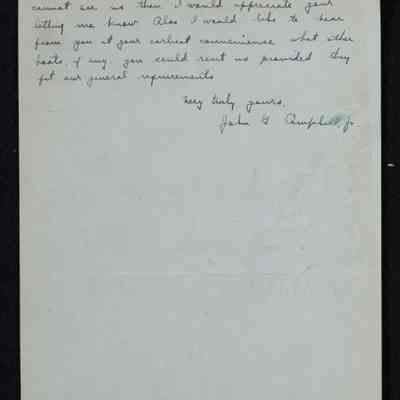 cannot see us then I would appreciate your
letting me know. Also I would like to hear
from you at your earliest convenience what other
boats, if any, you could rent us provided they
fit our general requirements
Very truly yours,
John G Campbell, Jr.